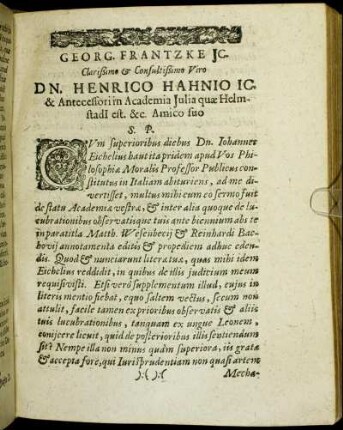 GEORG. FRANTZKE JC.
Clarissimo & Consultissimo Viro
DN. HENRICO HAHNIO IC.
& Antecessori in Academia Julia quæ Helm-
stadI est. &c. Amico suo
S. P.
CVm superioribus diebus Dn. Iohannes
Eichelius haut ita pridem apud Vos Phi-
losophiæ Moralis Professor Publicus con-
stitutus in Italiam abituriens, ad me di-
vertisset, multus mihi cum eo sermo fuit
de statu Academiæ vestræ, & inter alia quoque de lu-
cubrationibus observatisque tuis ante biennium abs te
in paratitla Matth. Wesenbecij & Reinhardi Bac-
hovij annotamenta editis & propediem adhuc eden-
dis. Quod & nunciarunt literæ tuæ, quas mihi idem
Eichelius reddidit, in quibus de illis juditium meum
requisivisti. Etsi verò supplementum illud, cujus in
literis mentio fiebat, equo saltem vectus, secum non
attulit, facile tamen ex prioribus observatis & aliis
tuis lucubrationibus, tanquam ex ungue Leonem,
conijcere licuit, quid de posterioribus illis sentiendum
sit? Nempe illa non minus quàm superiora, iis grata
& accepta fore, qui Iurisprudentiam non quasi artem
):( ):(
Mecha-